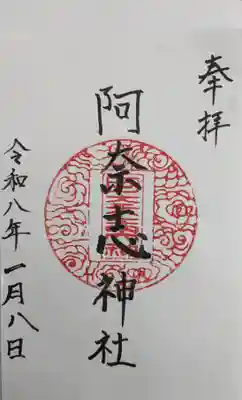 奉拝
阿奈志神社
令和八年一月八日